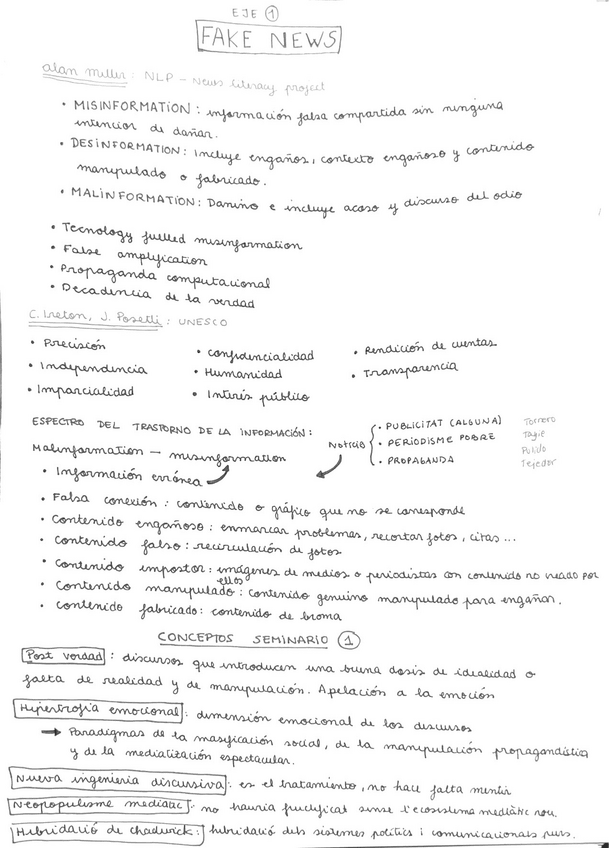 EJE 1
FAKE NEWS
alan miller: NLP - News literacy project
• MISINFORMATION: información falsa compartida sin ninguna
intencior de dañar.
• DESINFORMATION: Incluye engaños, contexto engañoso y contenido
manipulado o fabricado.
• MALINFORMATION: Danino e incluye acoso y discurso del odio
• Tecnology fuelled misinformation
• False amplyfication
• Propaganda computacional
• Decadencia de la verdad
C. Ireton, J. Posetti: UNESCO
• Precisión • confidencialidad • Rendición de cuentas
• Independencia • Humanidad • Transparencia
• Imparcialidad • Interés público
ESPECTRO DEL TRASTORNO DE LA INFORMACIÓN:
Malinformation — misinformation
Noticia { • PUBLICITAT (ALGUNA) Torrero
• PERIODISME POBRE Tagle
• PROPAGANDA Pulido
Tejedor
• Información errónea
• Falsa conexión: contenido o gráfico que no se corresponde
• Contenido engañoso: enmarcar problemas, recortar fotos, citas...
• Contenido falso: recirculación de fotos
• Contenido impostor: imágenes de medios o periodistas con contenido no creado por
ellos
• Contenido manipulado: contenido genuino manipulado para engañar.
• Contenido fabricado: contenido de broma
CONCEPTOS SEMINARIO 1
Post verdad: discursos que introducen una buena dosis de idealidad o
falta de realidad y de manipulación. Apelación a la emoción
Hipertrofia emocional: dimensión emocional de los discursos
→ Paradigmas de la masificación social, de la manipulación propagandística
y de la mediatización espectacular.
Nueva ingenieria discursiva: es el tratamiento, no hace falta mentir
Neopopulisme mediàtic: no hauria fructificat sense l'ecosistema mediàtic nou.
Hibridació de chadwick: hibridació dels sistemes polítics i comunicacionals purs.